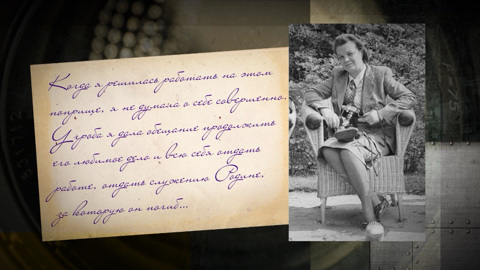 Когда я решилась работать на этом
поприще, я не думала о себе совершенно.
У гроба я дала обещание продолжить
его любимое дело и всю себя отдать
работе, отдать служению Родине,
за которую он погиб...